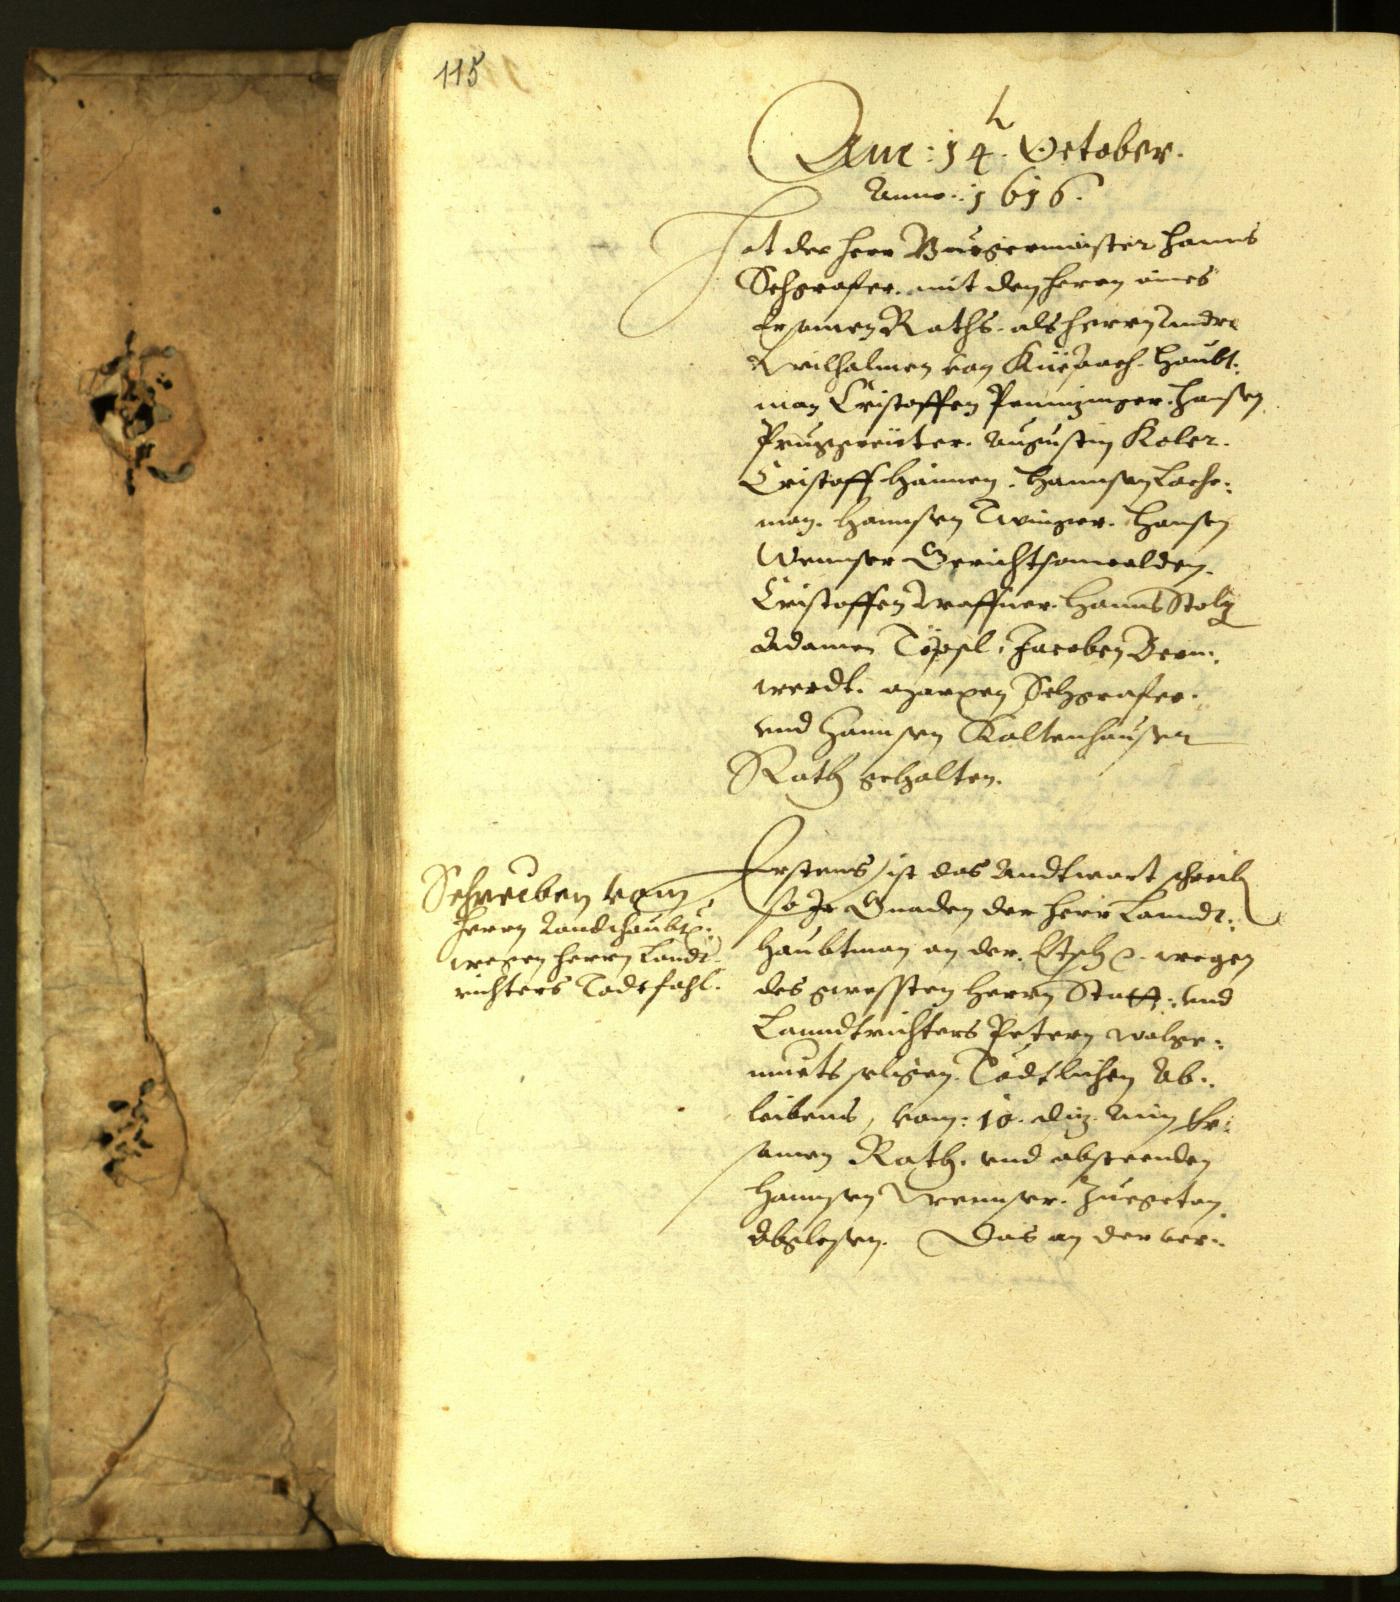 115
Am: 14. October.
Anno: 1616.
Hat der Herr Burgermaister Hanns
Sehgrafer. mit den Herrn aines
Ersamen Raths. als Herrn Andre
Wilhalmen von Küepach. Haubt:
man Cristoffen Penninger. Hansen
Pruggreiter. Augustin Koler.
Cristoff Hännen. Hannsen Lach:
man. Hannsen Twinger. Hansen
Wennser Gerichtsanwalden.
Cristoffen Waffner. Hanns Stolz
Adamen Töpsl. Jacoben Bern:
werdt. Marxen Sehgrafer.
vnd Hannsen Kaltenhauser
Rath gehalten.
Schreiben vom
Herrn Landtshaubt:
wegen Herrn Landt
richters Todtsfahl.
Erstens ist das Andtwort schreib
so Ir Gnaden der Herr Lanndt:
haubtman an der Etsch wegen
des gwessten Herrn Statt: vnd
Lanndtrichters Petern Walge:
muets seligen Tödtlichen Ab:
leibens, vom: 10. diz. Ainem Er:
samen Rath. vnd abstenden
Hannsen Wennser. Zuegetan
Abglesen. Das an der ver: